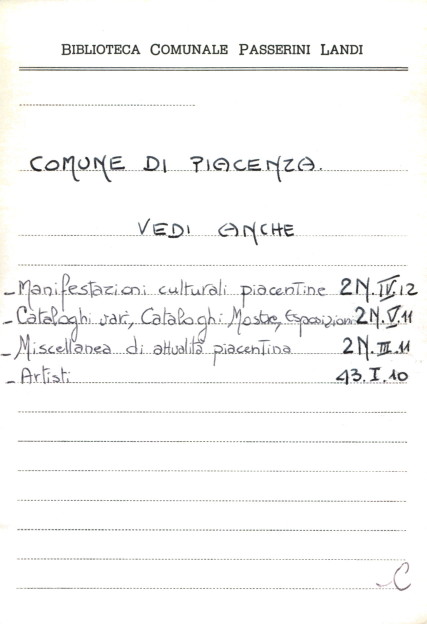 BIBLIOTECA COMUNALE PASSERINI LANDI
COMUNE DI PIACENZA.
VEDI ANCHE
- Manifestazioni culturali piacentine 2N.IV.12
- Cataloghi vari, Cataloghi Mostre, Esposizioni 2N.V.11
- Miscellanea di attualità piacentina 2N.III.11
- Artisti 43.I.10
C